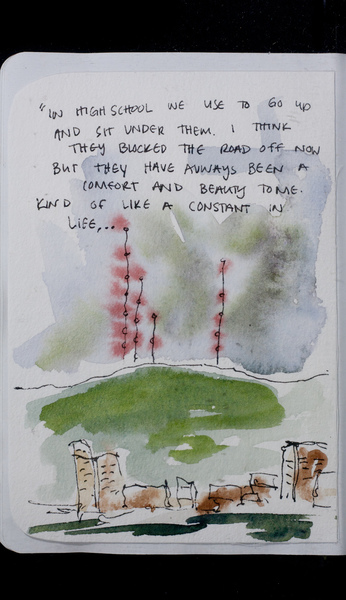 "IN HIGH SCHOOL WE USE TO GO UP
AND SIT UNDER THEM. I THINK
THEY BLOCKED THE ROAD OFF NOW
BUT THEY HAVE ALWAYS BEEN A
COMFORT AND BEAUTY TO ME.
KIND OF LIKE A CONSTANT IN
LIFE,..."